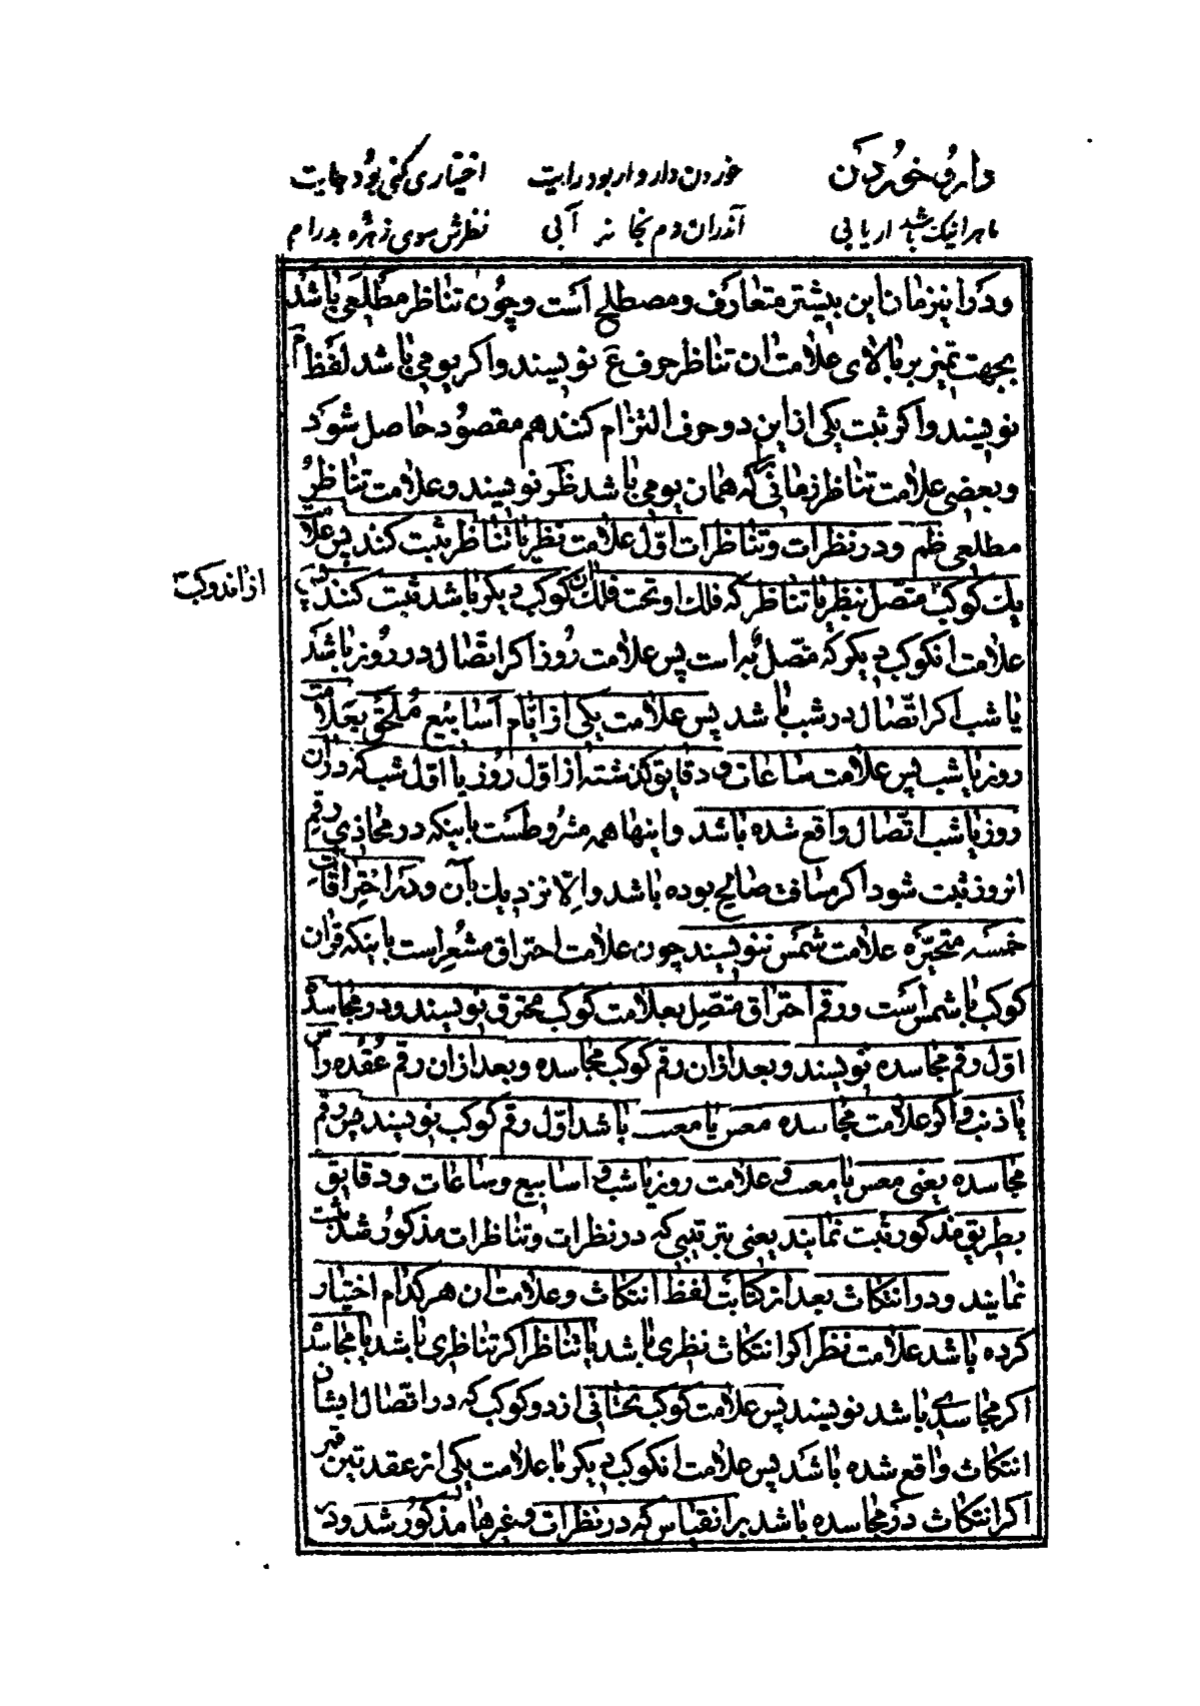 دارو خوردن
خوردن دارو ار بود رایت
اختیاری کنی بود جایت
ماه را نیک باشد اریابی
آندران دم بخانه آبی
نظرش سوی زهره بدرام
ودر انیزمان این بیشتر متعارف و مصطلح است و چون تناظر مطلعی باشد
بجهت تمیز بر بالای علامت ان تناظر حرف ع نویسند واکر یومی باشد لفظ م
نویسند واکر ثبت یکی از این دو حرف التزام کنند هم مقصود حاصل شود
و بعضی علامت تناظر زمانی که همان یومی باشد ظر نویسند و علامت تناظر
مطلعی ظم ودر نظرات و تناظرات اول علامت نظر یا تناظر ثبت کنند پس علامت
یک کوکب متصل بنظر یا تناظر که فلک او تحت فلک ان کوکب دیکر باشد ثبت کنند پس
از اندو کب
علامت انکوکب دیکر که متصل به است پس علامت روز اکر اتصال در روز باشد
یا شب اکر اتصال در شب باشد پس علامت یکی از ایام اسابیع ملحق بعلامت
روز یا شب پس علامت ساعات و دقایق کذشته از اول روز یا اول شب که دران
روز یا شب اتصال واقع شده باشد واینها همه مشروطست باینکه در محاذی رقم
انروز ثبت شود اکر مسافت صالح بوده باشد والا نزدیک بآن ودر احتراقات
خمسه متحیره علامت شمس ننویسند چون علامت احتراق مشعر است باینکه قران
کوکب با شمس است ورقم احتراق متصل بعلامت کوکب محترق نویسند ودر مجاسده
اول رقم مجاسده نویسند وبعد ازان رقم کوکب مجاسده وبعد ازان رقم عقده راس
یا ذنب واکر علامت مجاسده معس یا معب باشد اول رقم کوکب نویسند پس رقم
مجاسده یعنی معس یا معب و علامت روز یا شب و اسابیع وساعات ودقایق
بطریق مذکور ثبت نمایند یعنی بترتیبی که در نظرات و تناظرات مذکور شد ثبت
نمایند ودر انتکاث بعد از کتابت لفظ انتکاث وعلامت ان هر کدام اختیار
کرده باشد علامت نظر اکر انتکاث نظری باشد یا تناظر اکر تناظری باشد یا مجاسده
اکر مجاسدی باشد نویسند پس علامت کوکب تحتانی از دو کوکب که در اتصال ایشان
انتکاث واقع شده باشد پس علامت انکوکب دیکر یا علامت یکی از عقدتین قمر
اکر انتکاث در مجاسده باشد برانقیاس که در نظرات وغیرها مذکور شد ودر